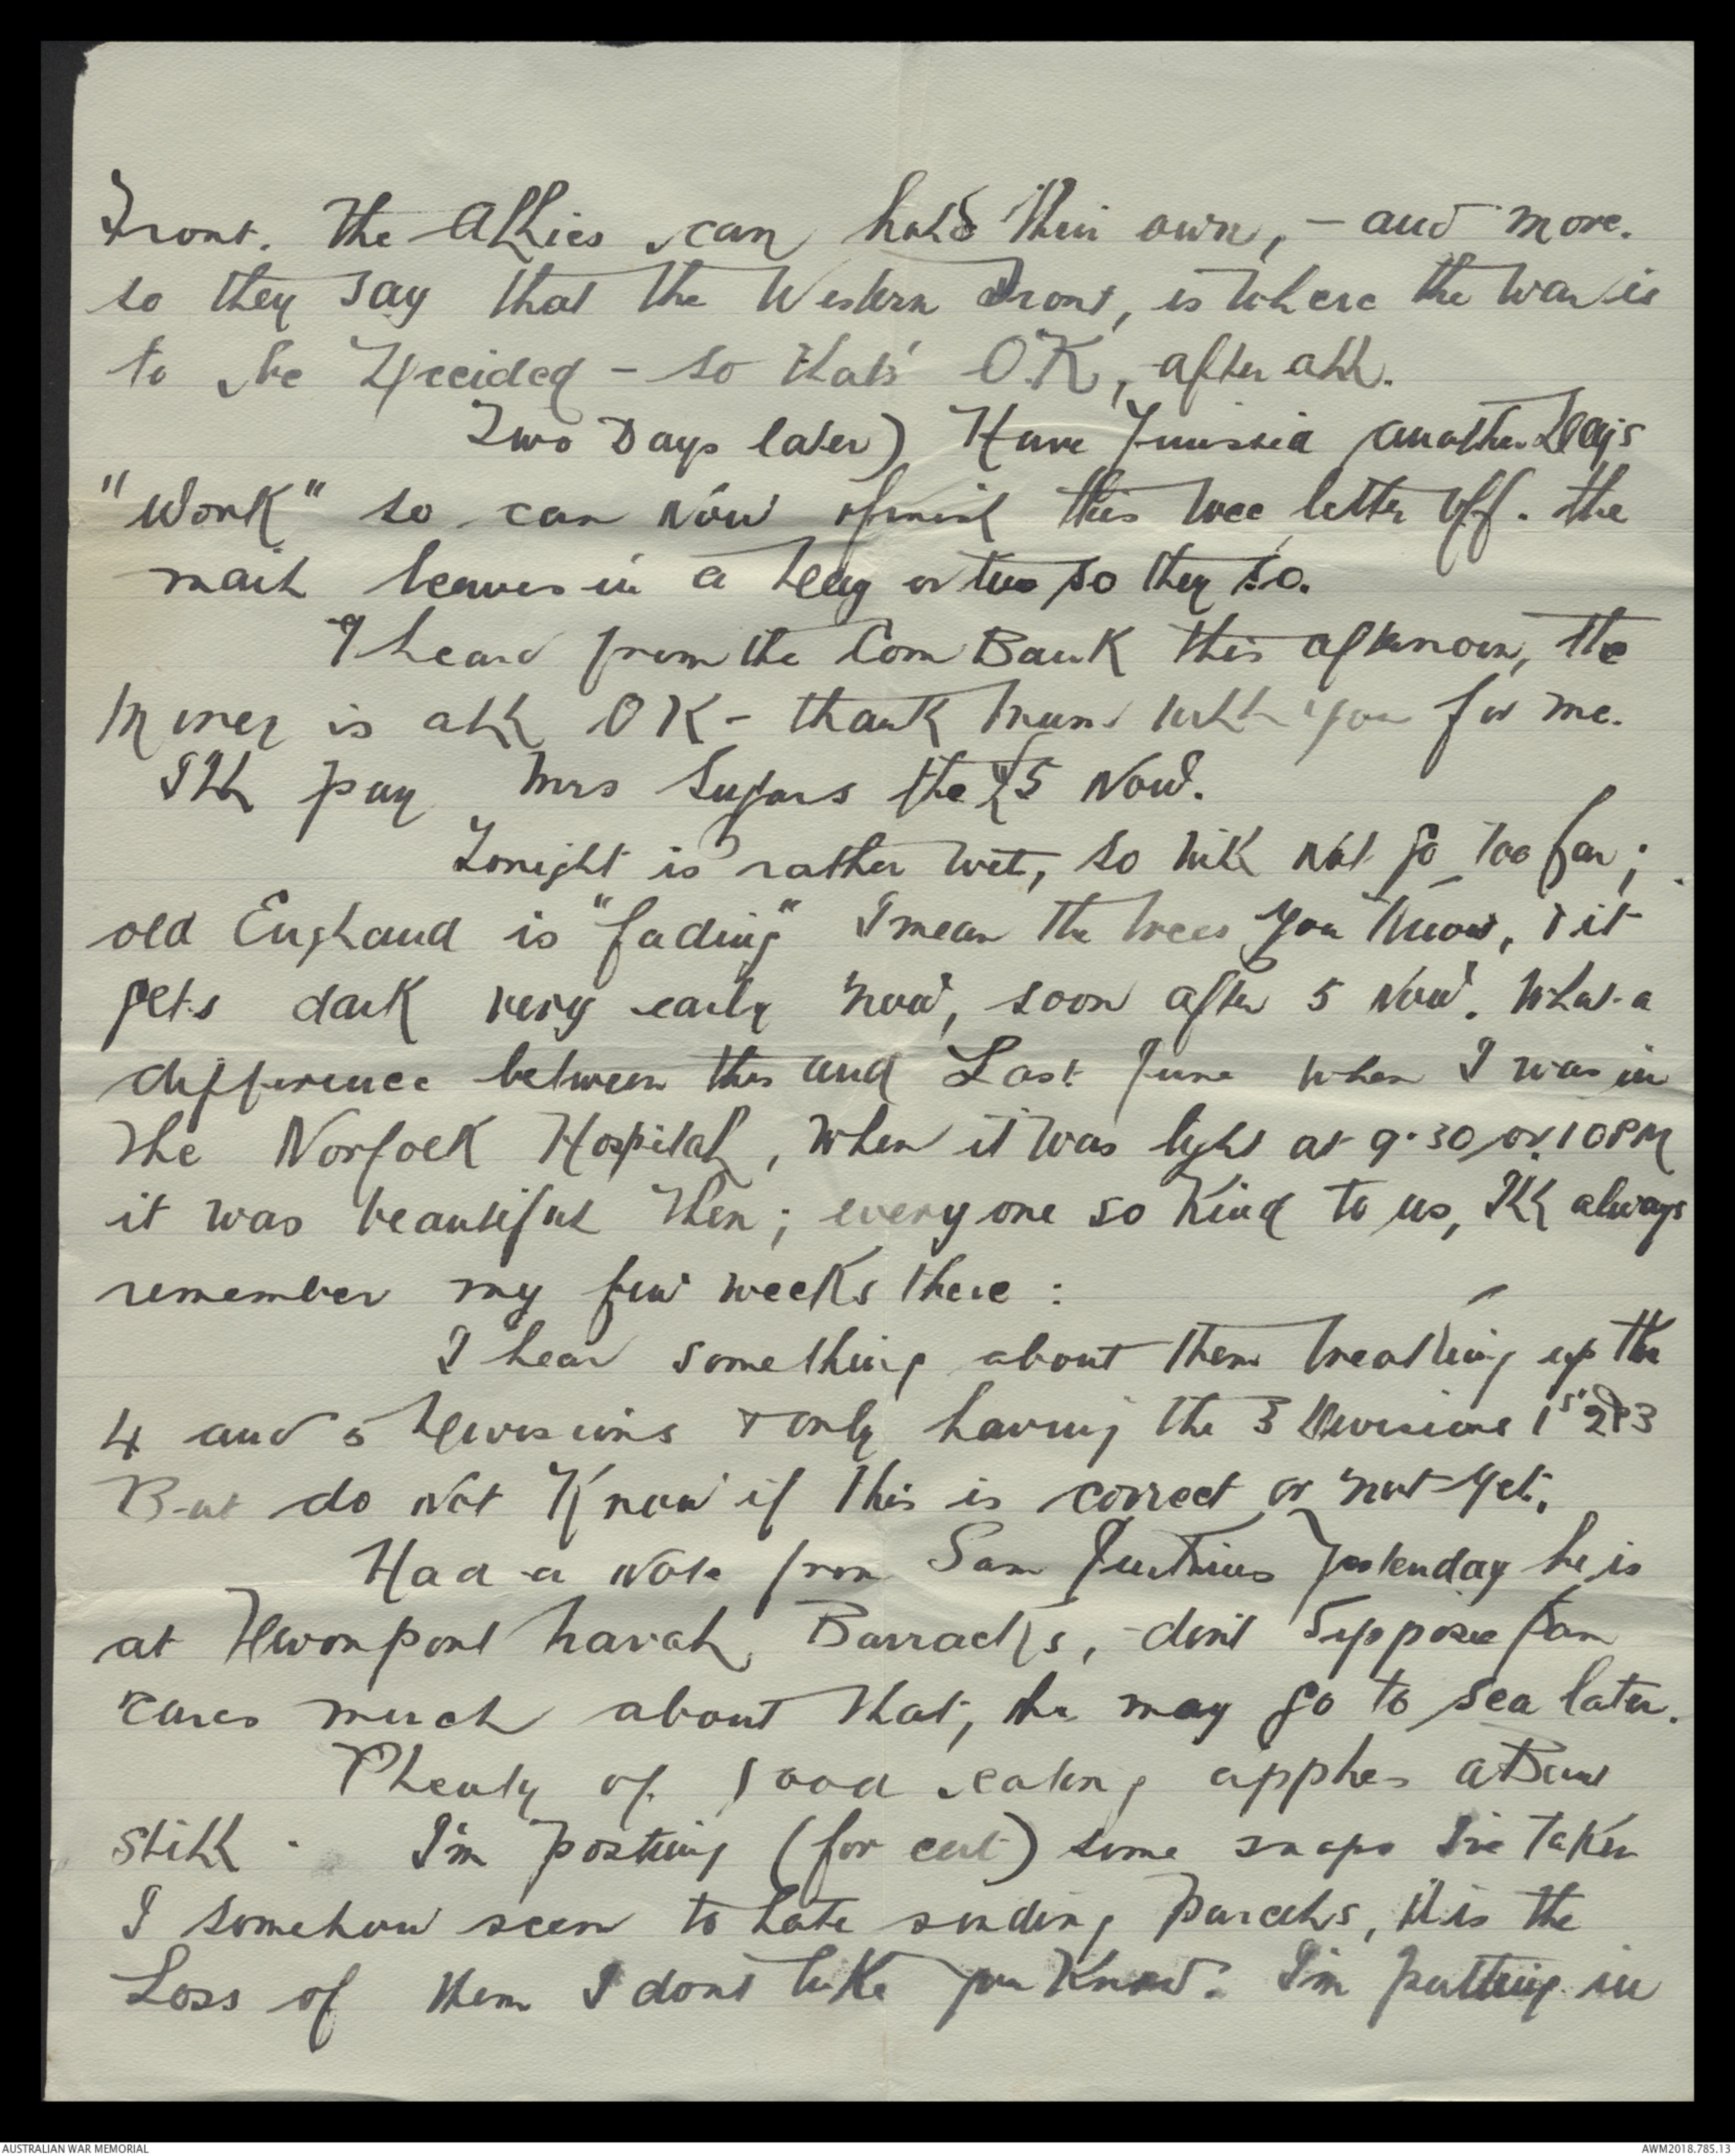 Front. The Allies can hold their own, - and more.
so they say that the Western Front, is where the war is
to be Decided - so that's O.K, after all.
Two Days later) Have finished another Day's
"Work" so can now finish this wee letter off. the
mail leaves in a Day or two so they so.
I heard from the Com Bank this afternoon, the
Money is all OK - thank Mum will you for me.
I'll pay Mrs Sugars the £5 Now.
Tonight is rather wet, so will not go too far;
old England is "fading" I mean the trees you know, & it
gets dark very early now, soon after 5 Now. What a
difference between this and Last June when I was in
the Norfolk Hospital, when it was light at 9.30 or 10 PM
it was beautiful then; everyone so kind to us, I'll always
remember my few weeks there :
I hear something about them breaking up the
4 and 5 Divisions & only having the 3 Divisions 1st 2 & 3
But do not Know if this is correct or not yet.
Had a note from Sam yesterday he is
at Devonport Naval Barracks, don't Suppose Sam
cares much about that, he may go to sea later.
Plenty of good eating apples about
still. I'm posting (for cert) some snaps I've taken
I somehow seem to hate sending Parcels, it is the
Loss of them I dont like you know. I'm putting in
AUSTRALIAN WAR MEMORIAL
AWM2018.785.13